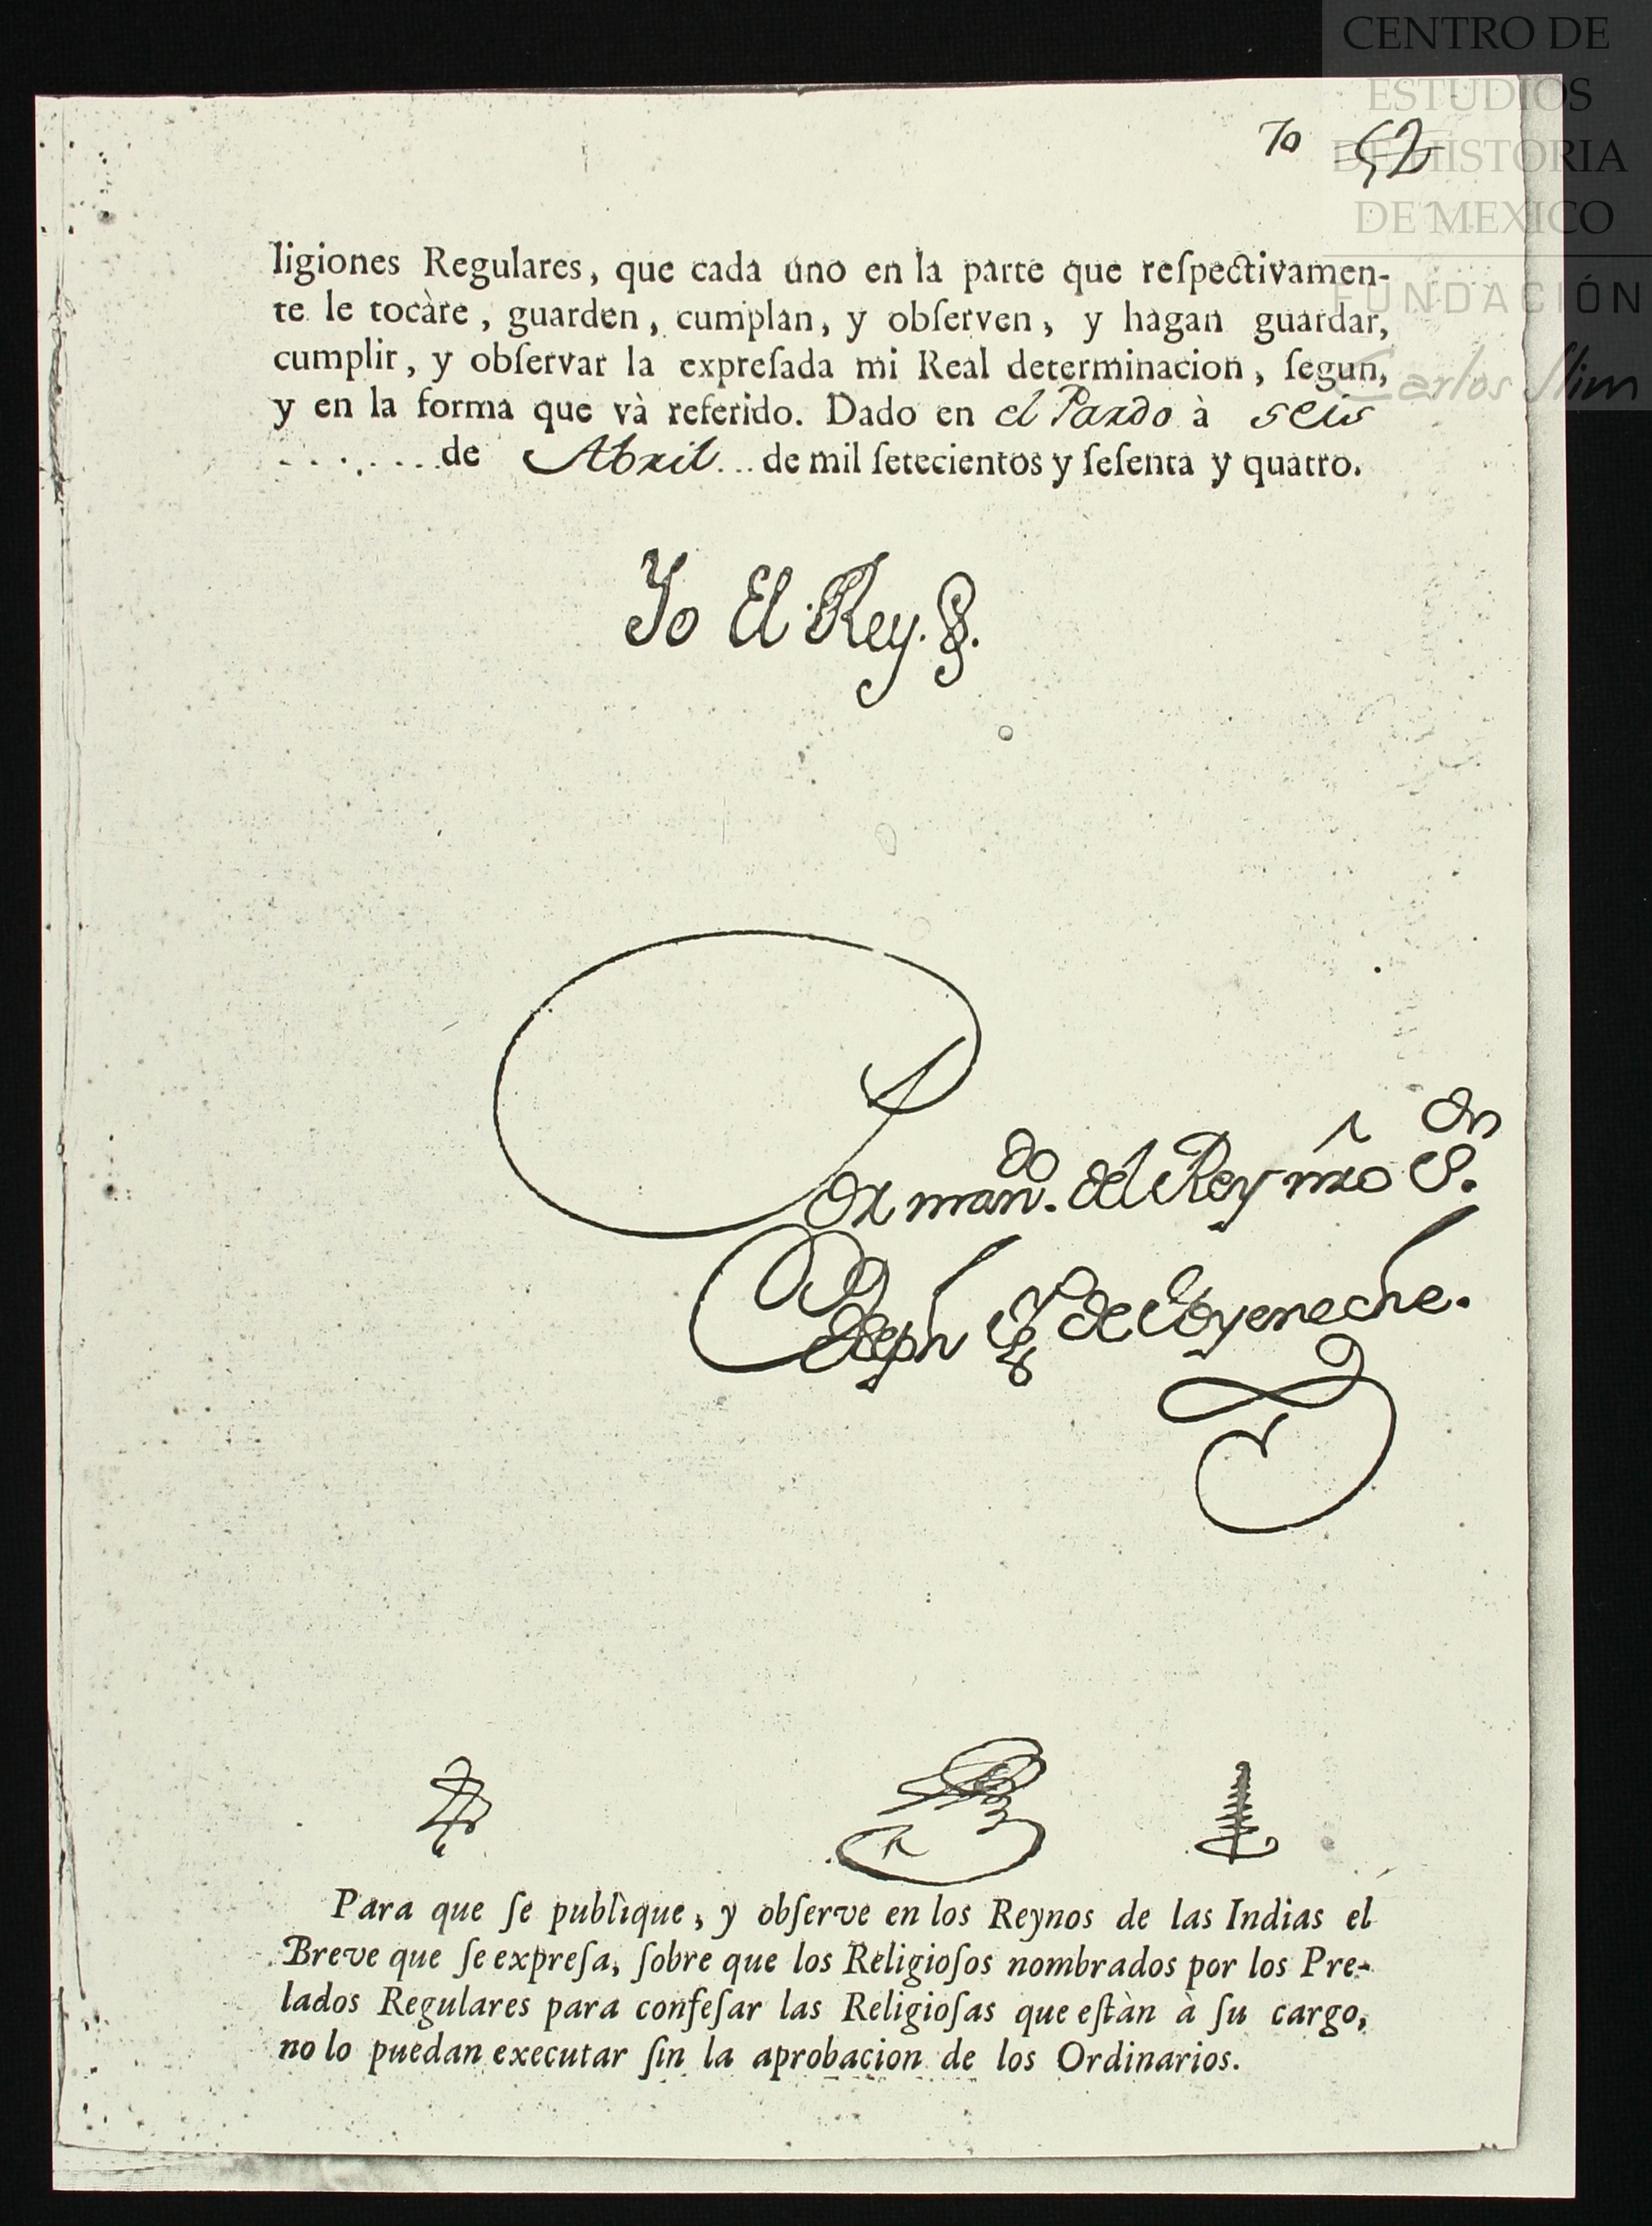 CENTRO DE
ESTUDIOS
DE HISTORIA
DE MEXICO
FUNDACIÓN
Carlos Slim
70 52
ligiones Regulares, que cada uno en la parte que reſpectivamen-
te le tocàre, guarden, cumplan, y obſerven, y hagan guardar,
cumplir, y obſervar la expreſada mi Real determinacion, ſegun,
y en la forma que và referido. Dado en el Pardo à seis
. . . . . . . de Abril . . . de mil ſetecientos y ſeſenta y quatro.
Yo El Rey.
Por man.do del Rey nro S.or
Joseph de Goyeneche.
Para que ſe publique, y obſerve en los Reynos de las Indias el
Breve que ſe expreſa, ſobre que los Religioſos nombrados por los Pre-
lados Regulares para confeſar las Religioſas que eſtàn à ſu cargo,
no lo puedan executar ſin la aprobacion de los Ordinarios.